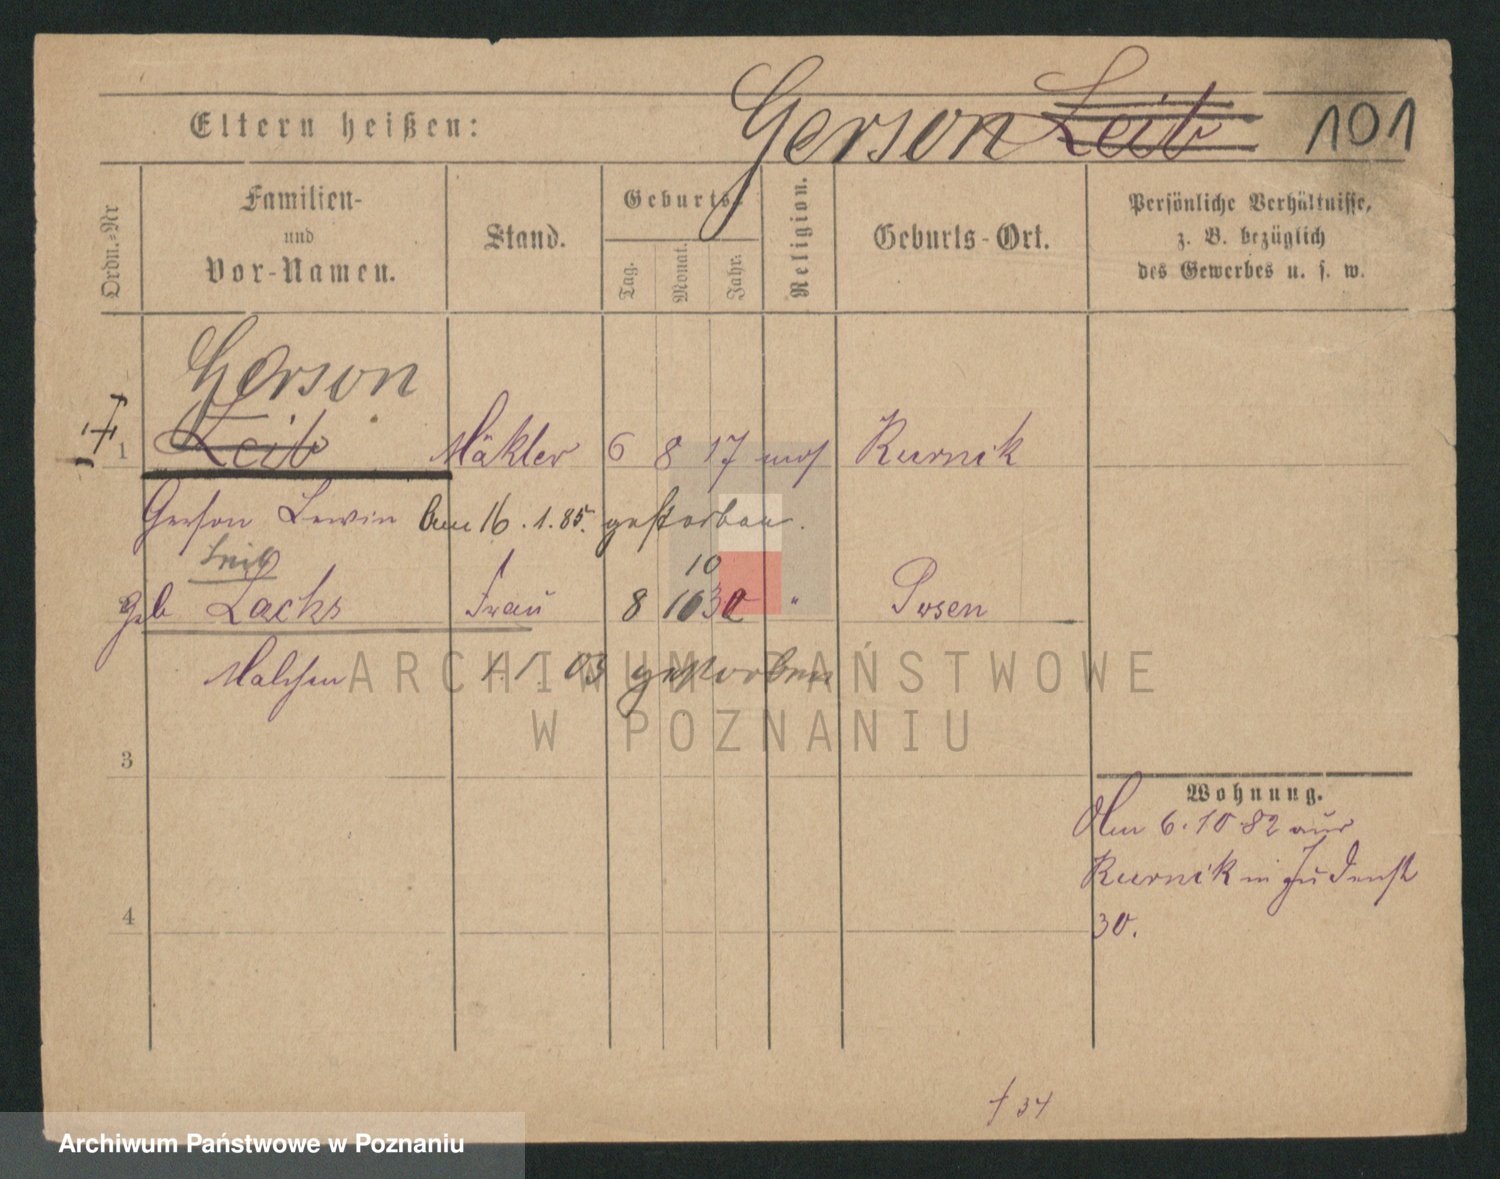 Eltern heißen:
Gerson Leib
101
Ordn.-Nr
Familien-
und
Vor-Namen.
Stand.
Geburts-
Tag.
Monat.
Jahr.
Religion.
Geburts-Ort.
Persönliche Verhältnisse,
z. B. bezüglich
des Gewerbes u. s. w.
Gerson
1 Leib Mäkler 6 8 17 mos Kurnik
Gerson Lewin am 16.1.85. gestorben.
Leib
10
geb Lachs Frau 8 10 30 " Posen
Malchen 1.1.03 gestorben
ARCHIWUM PAŃSTWOWE
W POZNANIU
3
Wohnung.
Am 6.10.82 aus
Kurnik in Judenst
30.
4
34
Archiwum Państwowe w Poznaniu